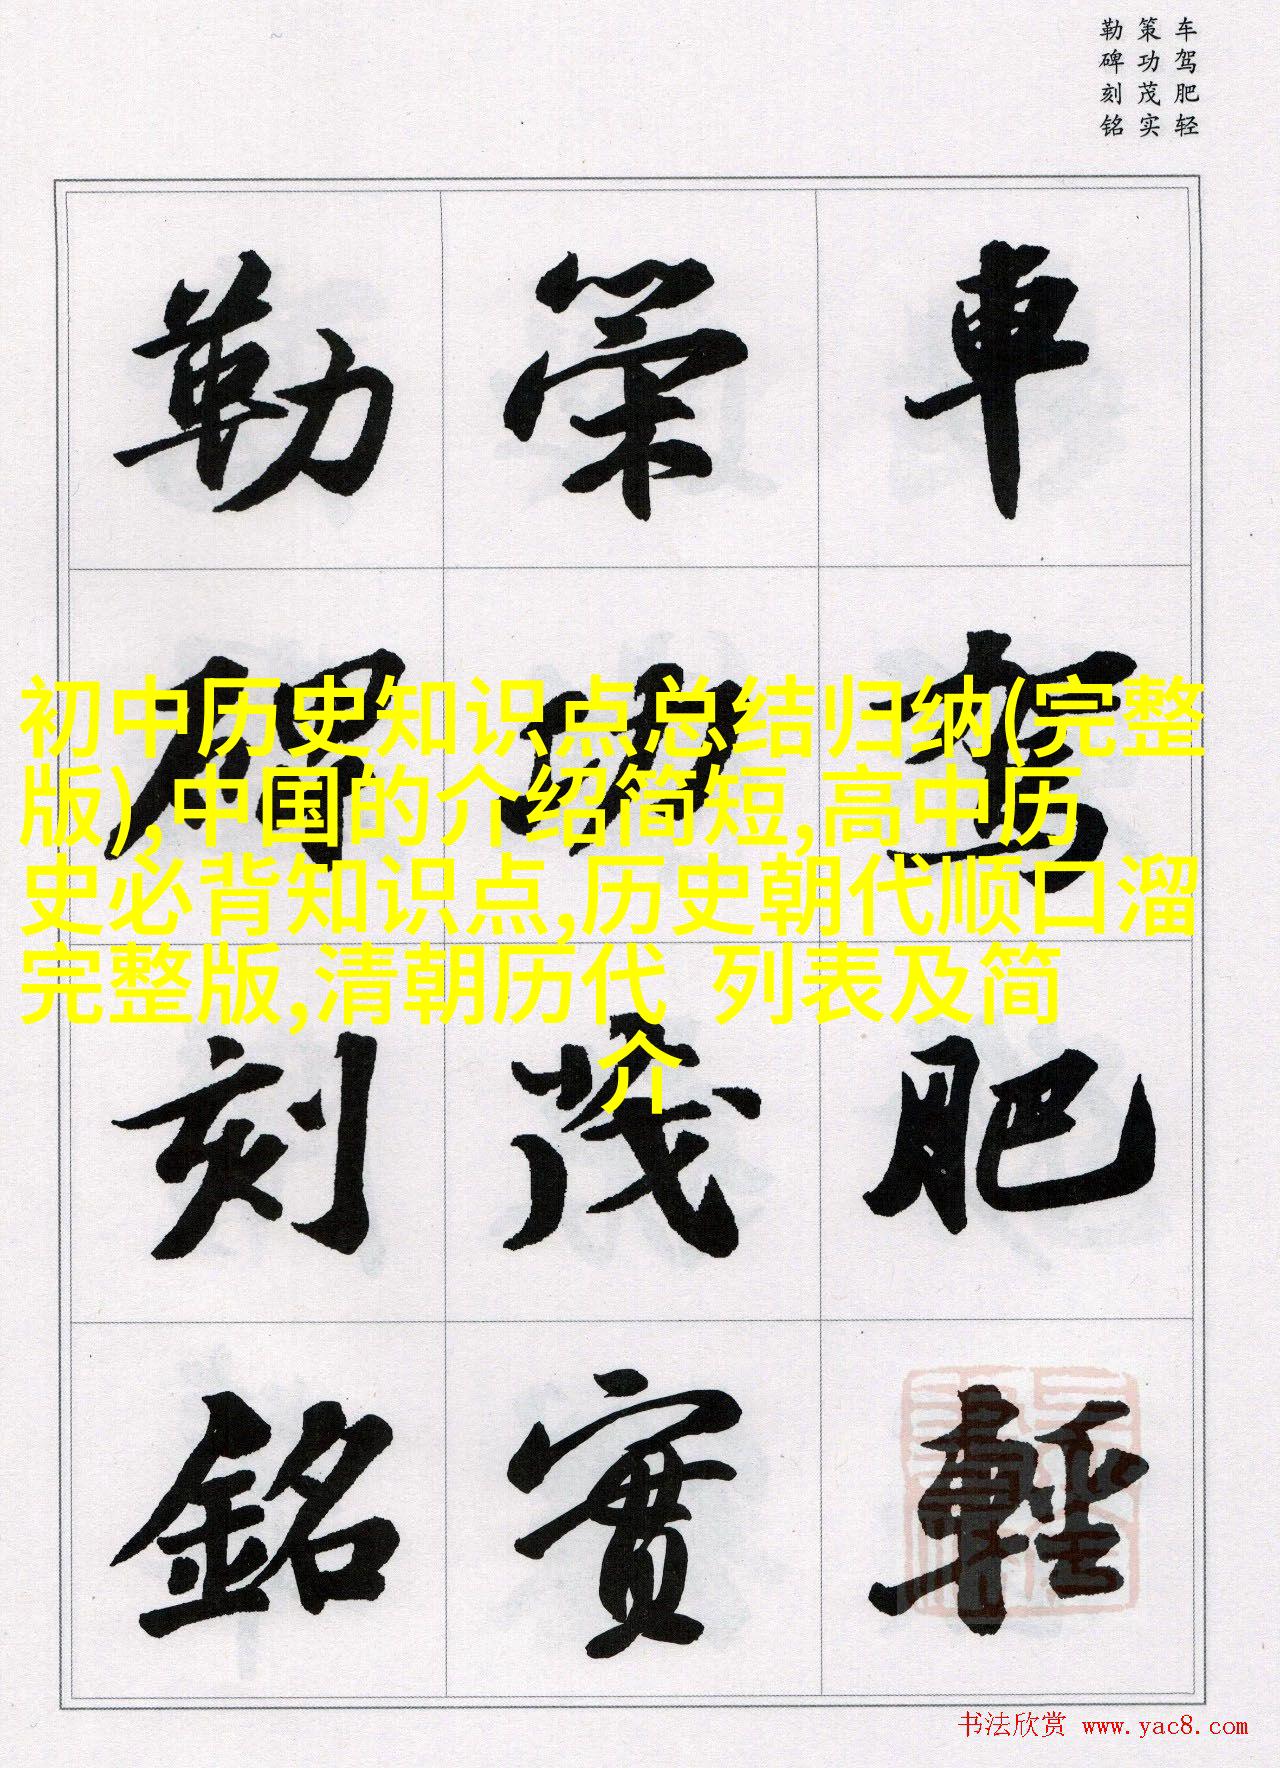 车驾肥轻
策功茂实
勒碑刻铭
車駕肥輕
策功茂實
勒碑刻銘
初中历史知识点总结归纳(完整
版),中国的介绍简短,高中历
史必背知识点,历史朝代顺口溜
完整版,清朝历代 列表及简
介
书法欣赏 www.yac8.com